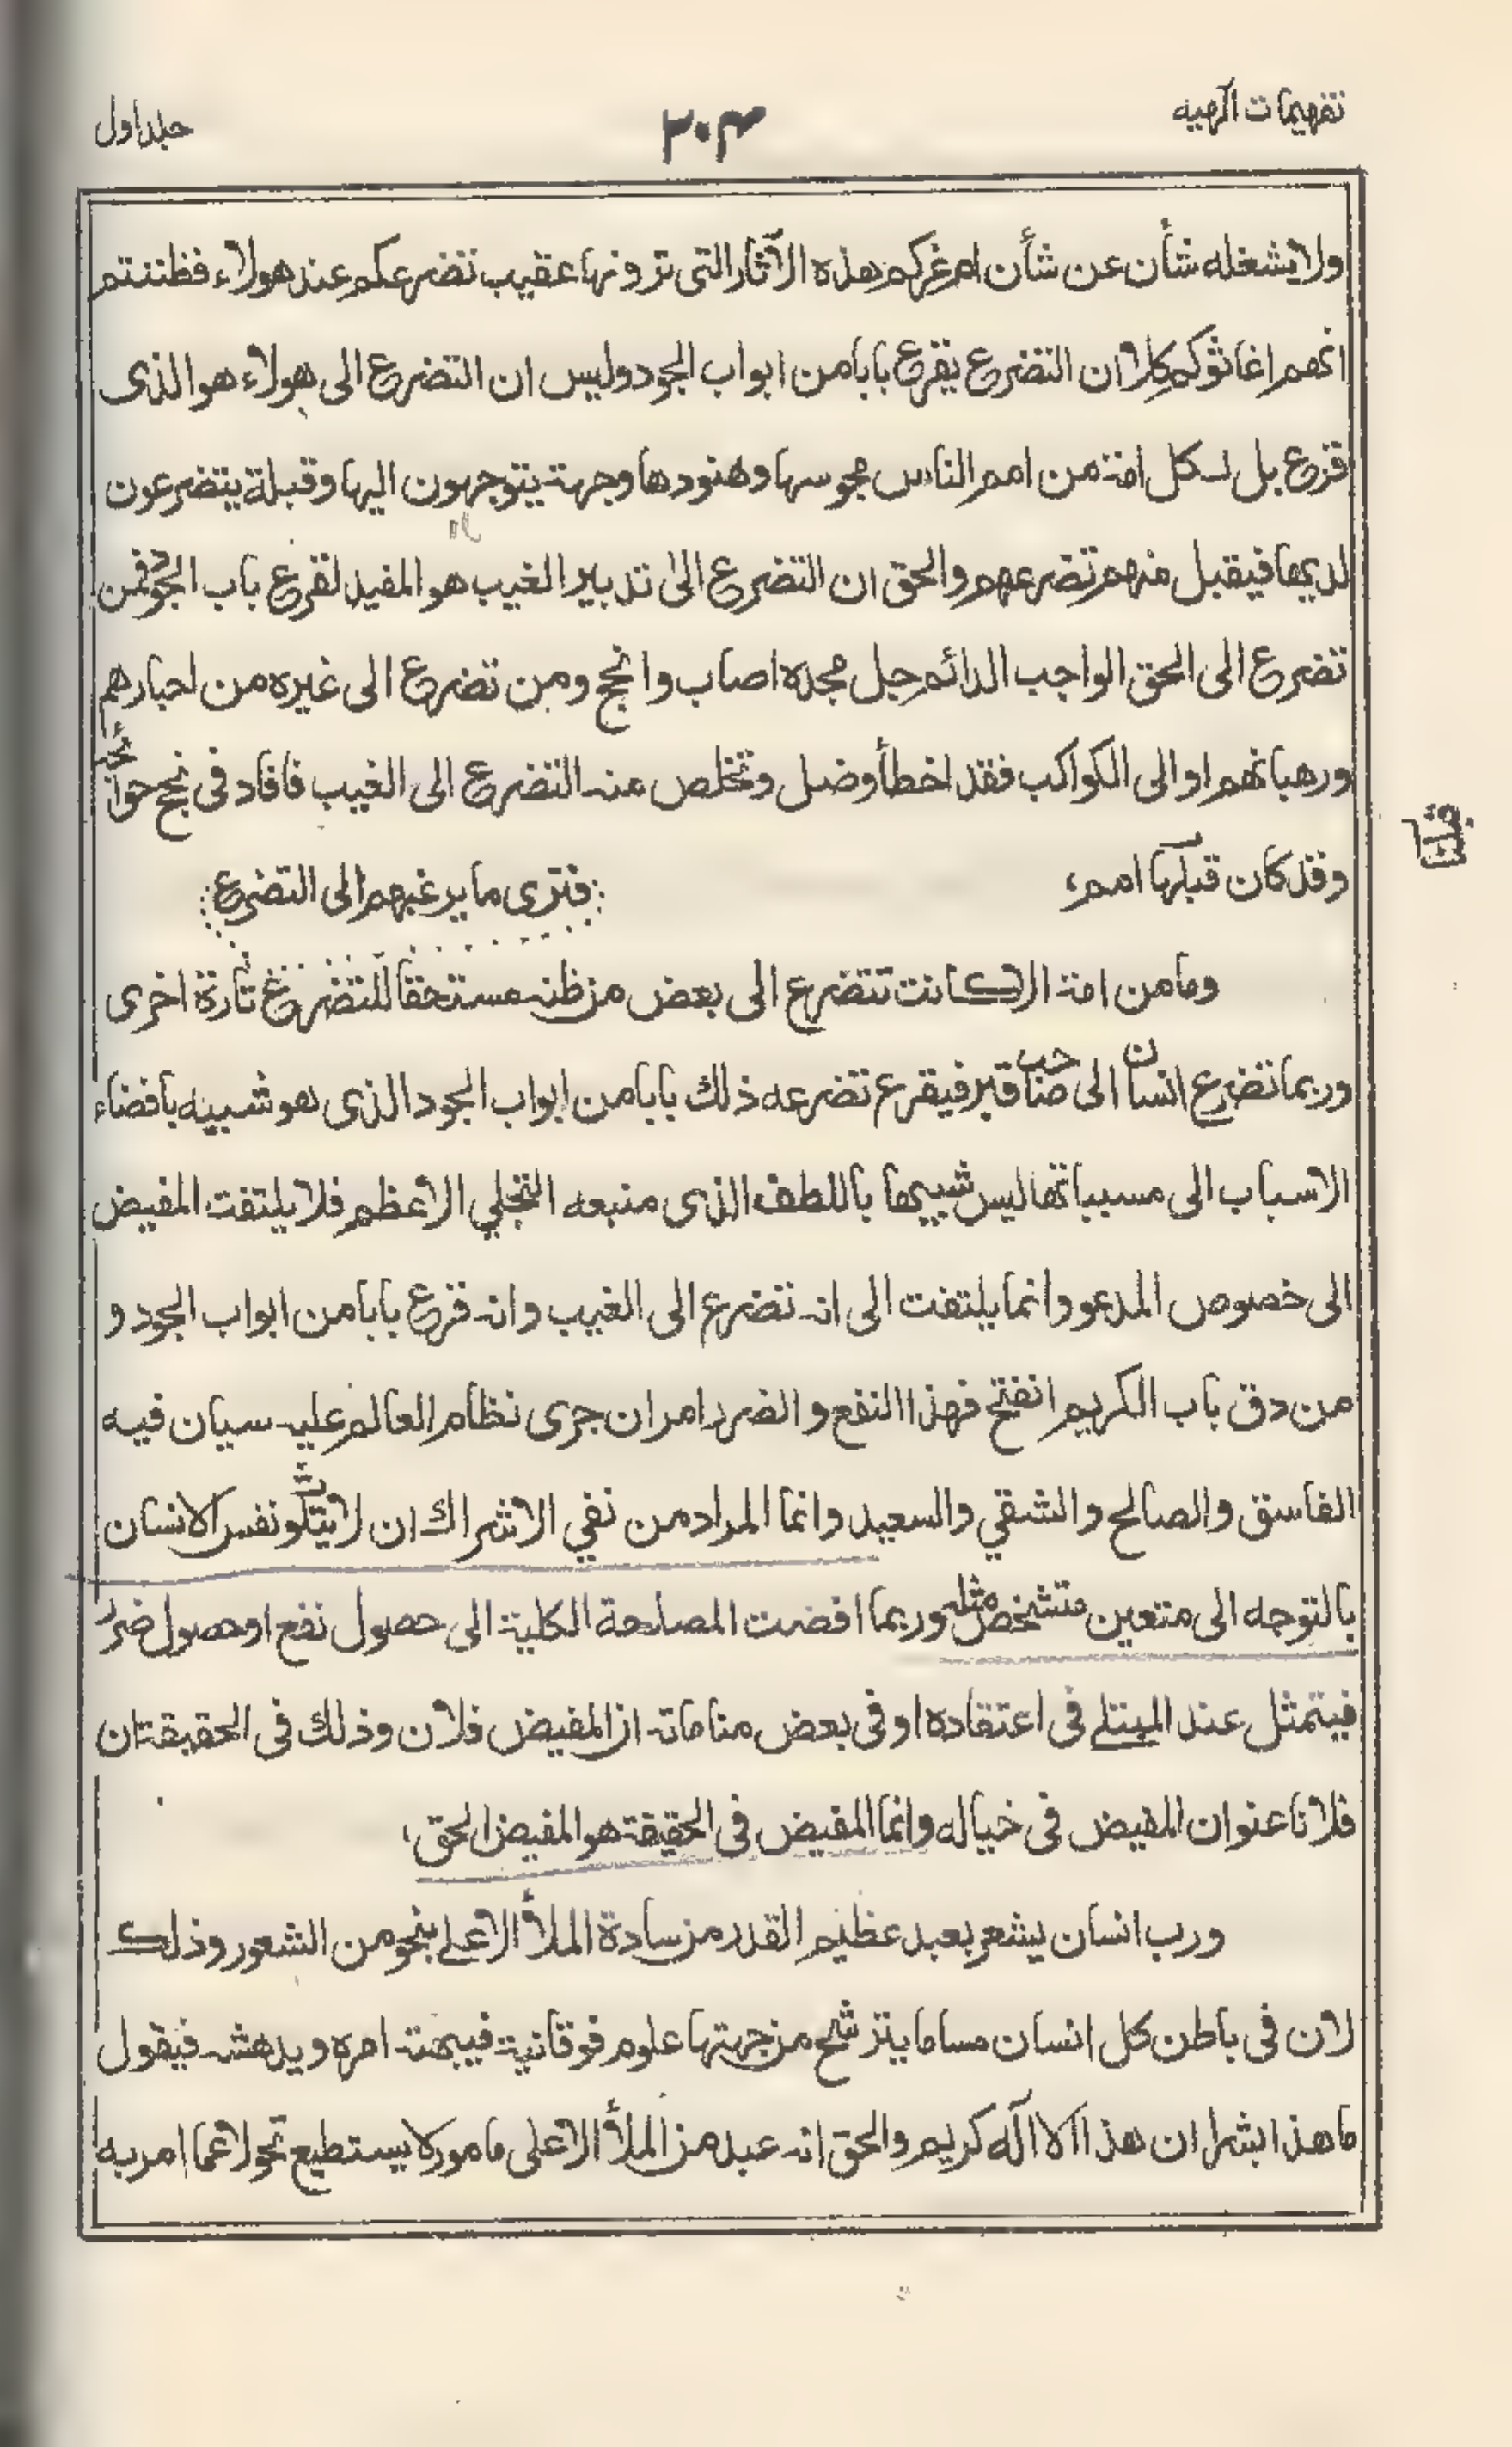 تفهيمات الٰهيه
٣٠٤
جلد اول
ولا يشغله شأن عن شأن ام غركم هذه الآثار التى ترونها عقيب تضرعكم عند هولاء فظننتم
انهم اغاثوكم كلا ان التضرع يقرع بابا من ابواب الجود وليس ان التضرع الى هولاء هو الذى
قرع بل لكل امة من امم الناس مجوسها وهنودها وجهة يتوجهون اليها وقبلة يتضرعون
لديها فيقبل منهم تضرعهم والحق ان التضرع الى تدبير الغيب هو المفيد لقرع باب الجود فمن
تضرع الى الحق الواجب الدائم جل مجده اصاب وانجح ومن تضرع الى غيره من احبارهم
ورهبانهم او الى الكواكب فقد اخطأ وضل وتخلص منه التضرع الى الغيب فافاد فى نجح حوائجهم
وقد كان قبلها امم، فترى ما يرغبهم الى التضرع
قبلنا
وما من امة الا كانت تتضرع الى بعض من ظنه مستحقا للتضرع تارة اخرى
وربما تضرع انسان الى صاحب قبر فيقرع تضرعه ذلك بابا من ابواب الجود الذى هو شبيه بافضاء
الاسباب الى مسبباتها ليس شبيها باللطف الذى منبعه التجلي الاعظم فلا يلتفت المفيض
الى خصوص المدعو وانما يلتفت الى انه تضرع الى الغيب وانه قرع بابا من ابواب الجود و
من دق باب الكريم انفتح فهذا النفع والضرر امران جرى نظام العالم عليه سيان فيه
الفاسق والصالح والشقي والسعيد وانما المراد من نفي الاشراك ان لا يتلوث نفس الانسان
بالتوجه الى متعين متشخص مثله وربما افضت المصلحة الكلية الى حصول نفع او حصول ضرر
فيتمثل عند المبتلے فى اعتقاده او فى بعض مناماته ان المفيض فلان وذلك فى الحقيقة ان
فلانا عنوان المفيض فى خياله وانما المفيض فى الحقيقة هو المفيض الحق،
ورب انسان يشعر بعبد عظيم القدر من سادة الملأ الاعلے بنحو من الشعور وذلك
لان فى باطن كل انسان مساما يترشح من جهتها علوم فوقانية فيبهته امره ويدهشه فيقول
ما هذا بشرا ان هذا الا الٓه كريم والحق انه عبد من الملأ الاعلى مامور لا يستطيع تحولا عما امر به